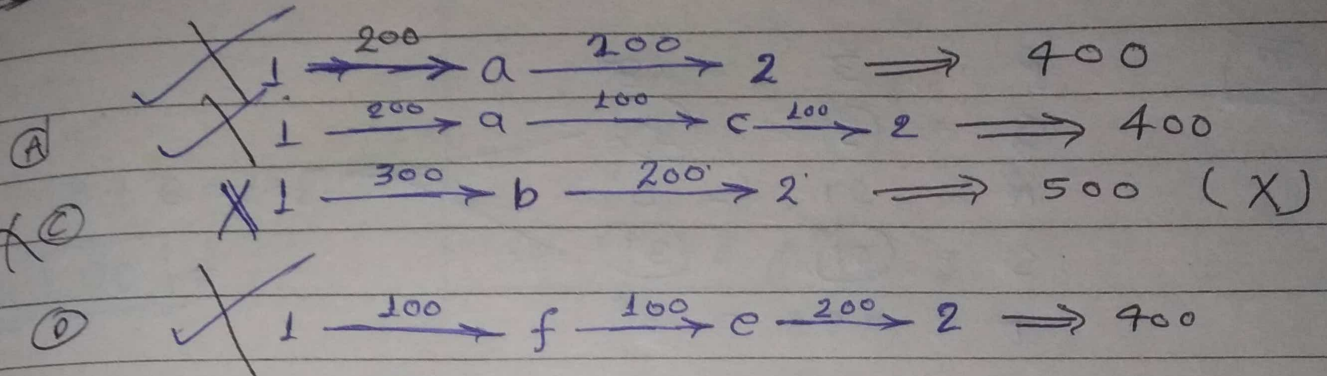 1 200→ a 200→ 2 ⟹ 400
Ⓐ 1 200→ a 100→ c 100→ 2 ⟹ 400
X Ⓒ X 1 300→ b 200→ 2 ⟹ 500 (X)
Ⓓ 1 100→ f 100→ e 200→ 2 ⟹ 400